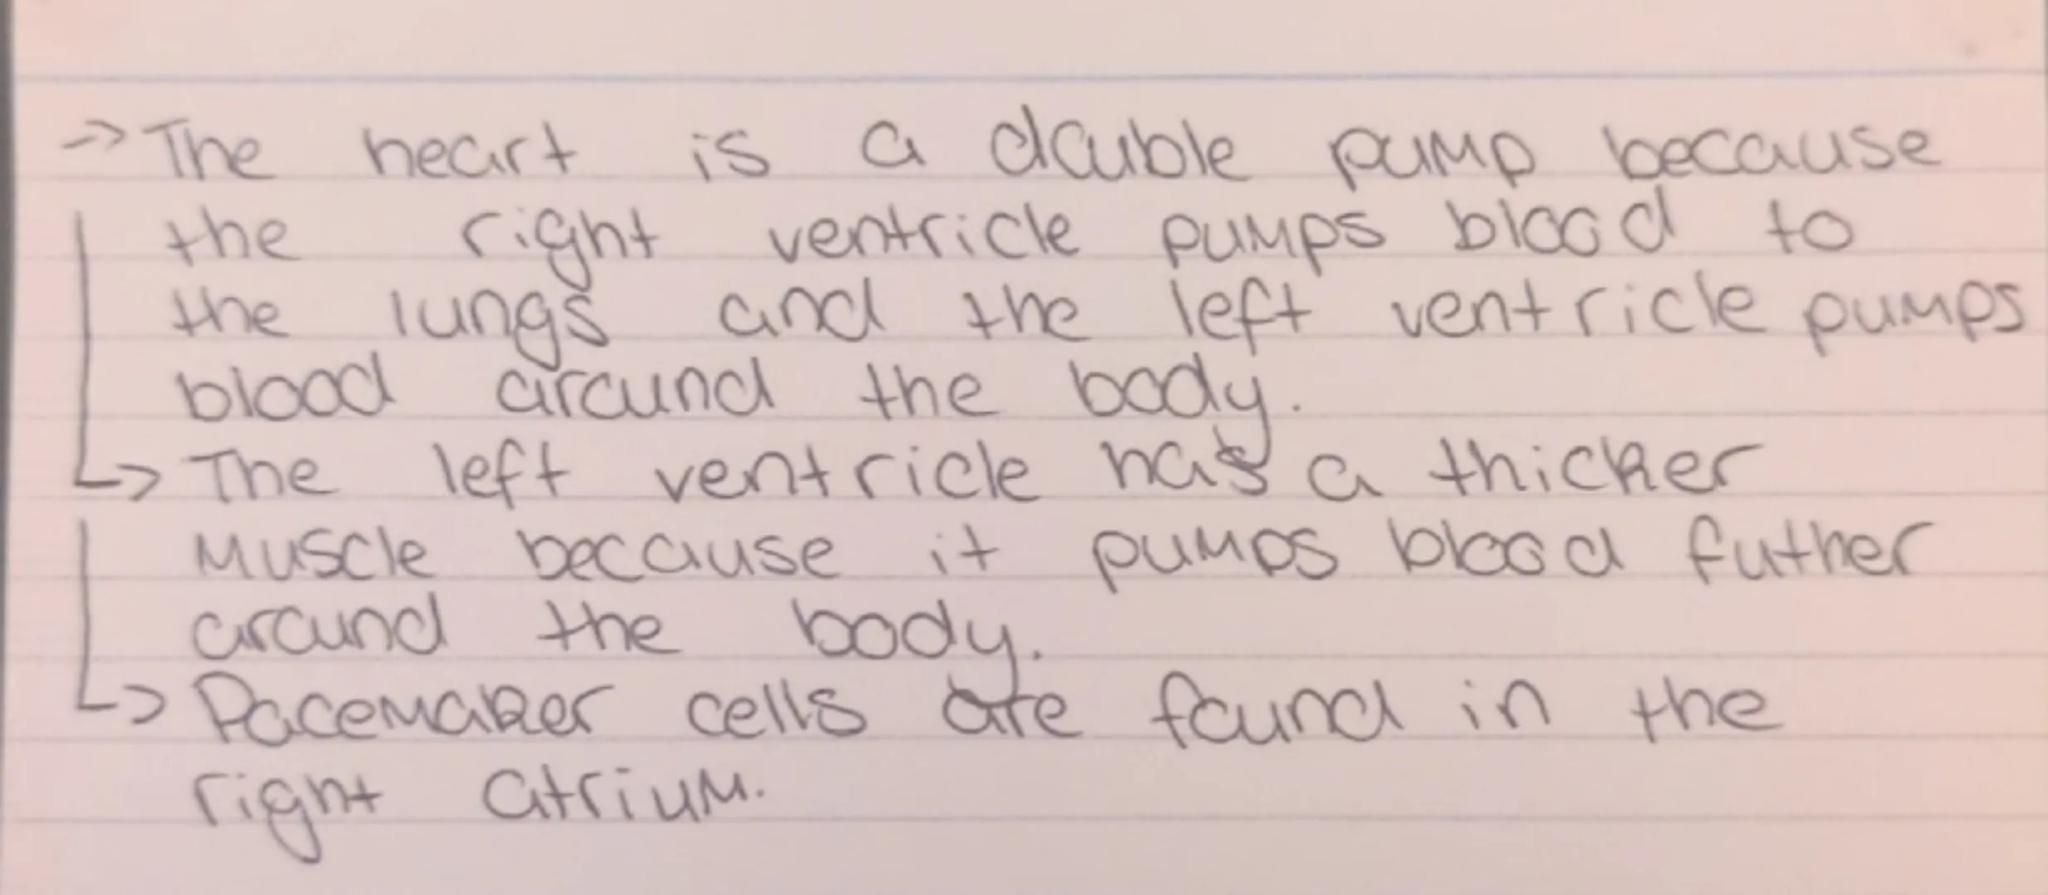 → The heart is a double pump because
the right ventricle pumps blood to
the lungs and the left ventricle pumps
blood around the body.
↳ The left ventricle has a thicker
muscle because it pumps blood futher
around the body.
↳ Pacemaker cells are found in the
right atrium.